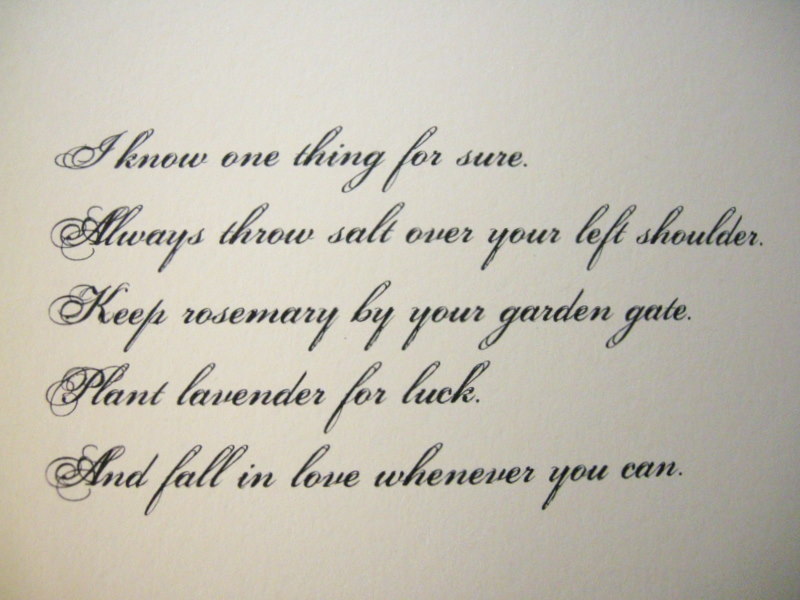 I know one thing for sure.
Always throw salt over your left shoulder.
Keep rosemary by your garden gate.
Plant lavender for luck.
And fall in love whenever you can.